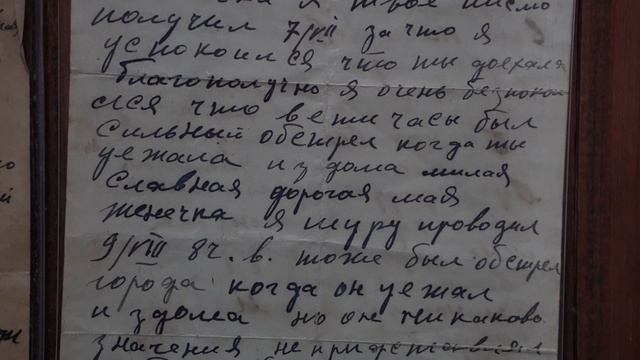 я твое письмо
получил 7/VIII за что я
успокоился что ты доехала
благополучно я очень безпокои
лся что в ети часы был
сильный обстрел когда ты
уежала из дома милая
славная дорогая мая
женечка я шуру проводил
9/VIII 8ч. в. тоже был обстрел
города когда он уежал
из дома но он никакова
значения не придставлял